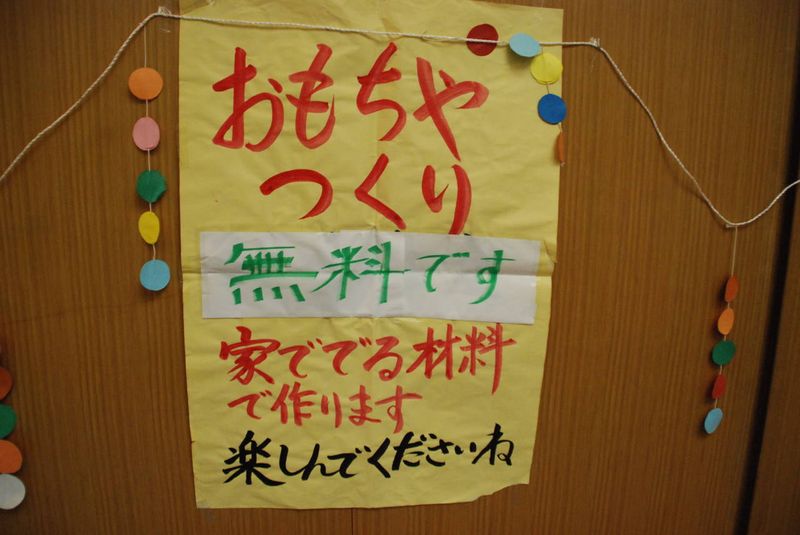 おもちゃ
つくり
無料です
家ででる材料
で作ります
楽しんでくださいね